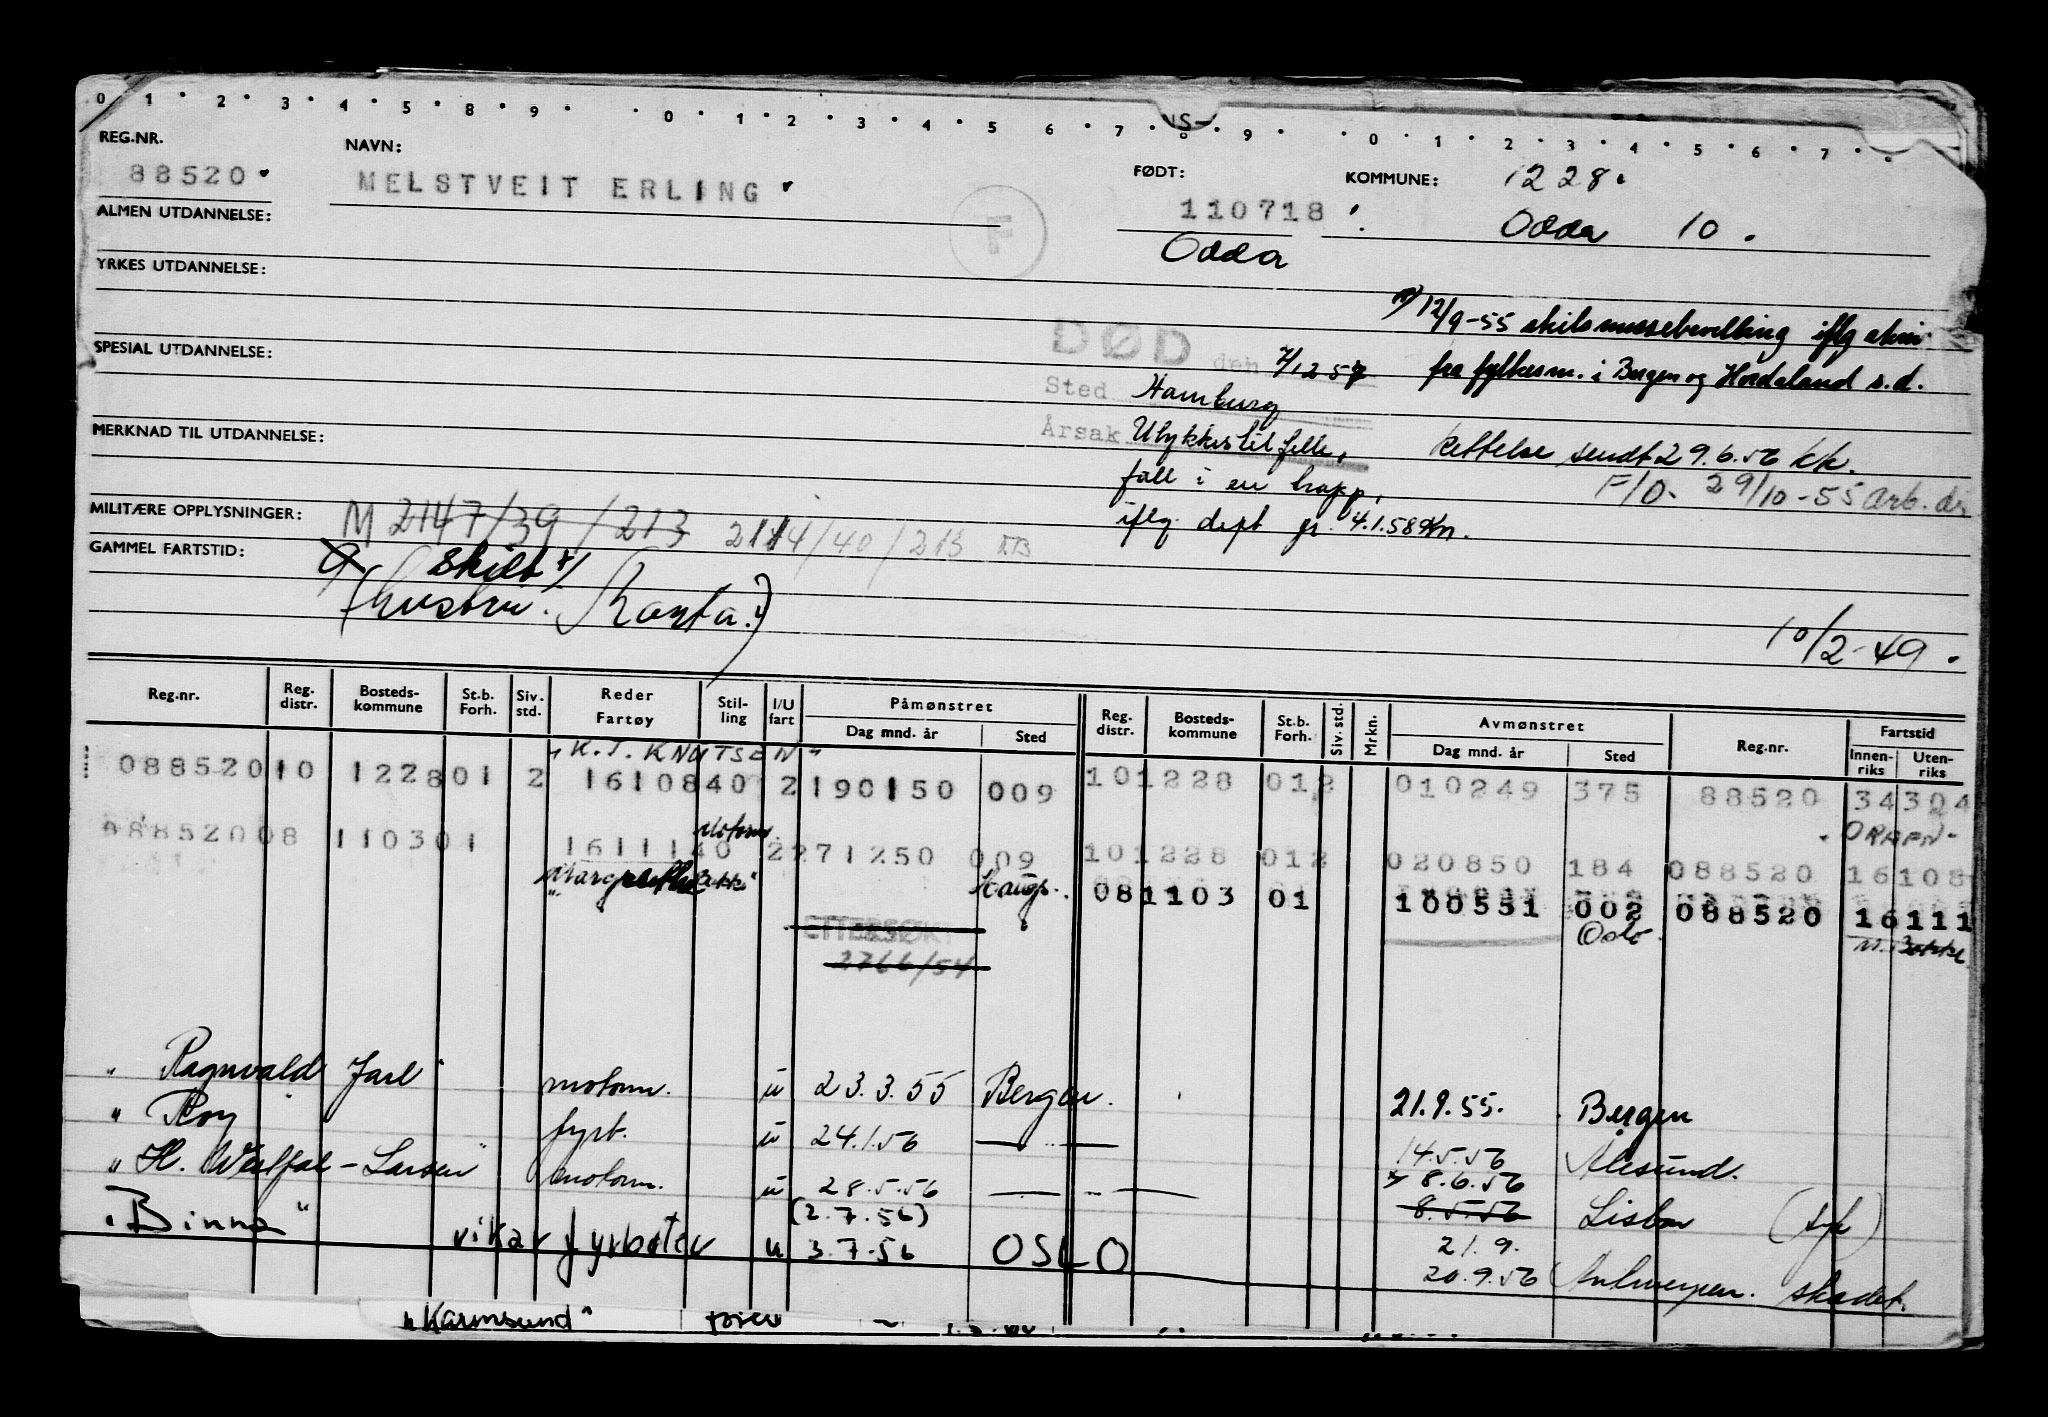 0 1 2 3 4 5 8 9 0 1 2 3 4 5 6 7 8 9 0 1 2 3 4 5 6 7
REG.NR. NAVN: FØDT: KOMMUNE: 1228.
88520 MELSTVEIT ERLING 110718 Odda 10.
F
ALMEN UTDANNELSE: Odda
YRKES UTDANNELSE:
x) 12/9-55 skilsmissebevilling iflg skriv
fra fylkesm. i Bergen og Hordaland s.d.
SPESIAL UTDANNELSE: DØD den 7/12 57
Sted Hamburg
MERKNAD TIL UTDANNELSE: Årsak Ulykkestilfelle,
fall i en trapp,
iflg. dept gr. 4.1.58 Kn.
Rettelse sendt 29.6.56 KK.
F/O. 29/10-55 arb. dir
MILITÆRE OPPLYSNINGER: M 2147/39/213 2114/40/213
GAMMEL FARTSTID: Skilt x)
(hustru: Kanta.)
10/2-49.
Reg.nr. Reg. distr. Bosteds-kommune St.b. Forh. Siv. std. Reder Fartøy Stil-ling I/U fart Påmønstret Dag mnd. år Sted Reg. distr. Bosteds-kommune St.b. Forh. Siv. std. Mrkn. Avmønstret Dag mnd. år Sted Reg.nr. Fartstid Innen-riks Uten-riks
"K.J. KNUTSEN"
088520 10 1228 01 2 16108 40 2 190150 009 10 1228 01 2 010249 375 88520 34304
"DRAFN"
088520 08 1103 01 16111 40 2 271250 009 10 1228 01 2 020850 184 088520 16108
Motorm.
"Margrethe Bakke" Haugs. 08 1103 01 100551 002 088520 16111
Oslo M. Bakke
ETTERSØKT
2766/54
"Ragnvald Jarl" motorm. u 23.3.55 Bergen. 21.9.55. Bergen
"Roy" fyrb. u 24.1.56 — " — 14.5.56 Ålesund.
"H. Westfal-Larsen" motorm. u 28.5.56 — " — 8.6.56
8.5.56 Lisbon (syk)
(2.7.56)
"Binna" vikar fyrbøter u 3.7.56 OSLO 21.9.
20.9.56 Antwerpen. skadet.
"Karmsund"